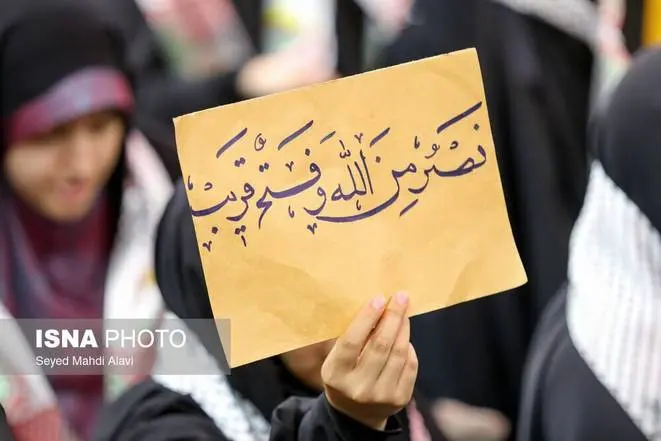 نَصْرٌ مِنَ اللهِ وَ فَتْحٌ قَریب
ISNA PHOTO
Seyed Mahdi Alavi